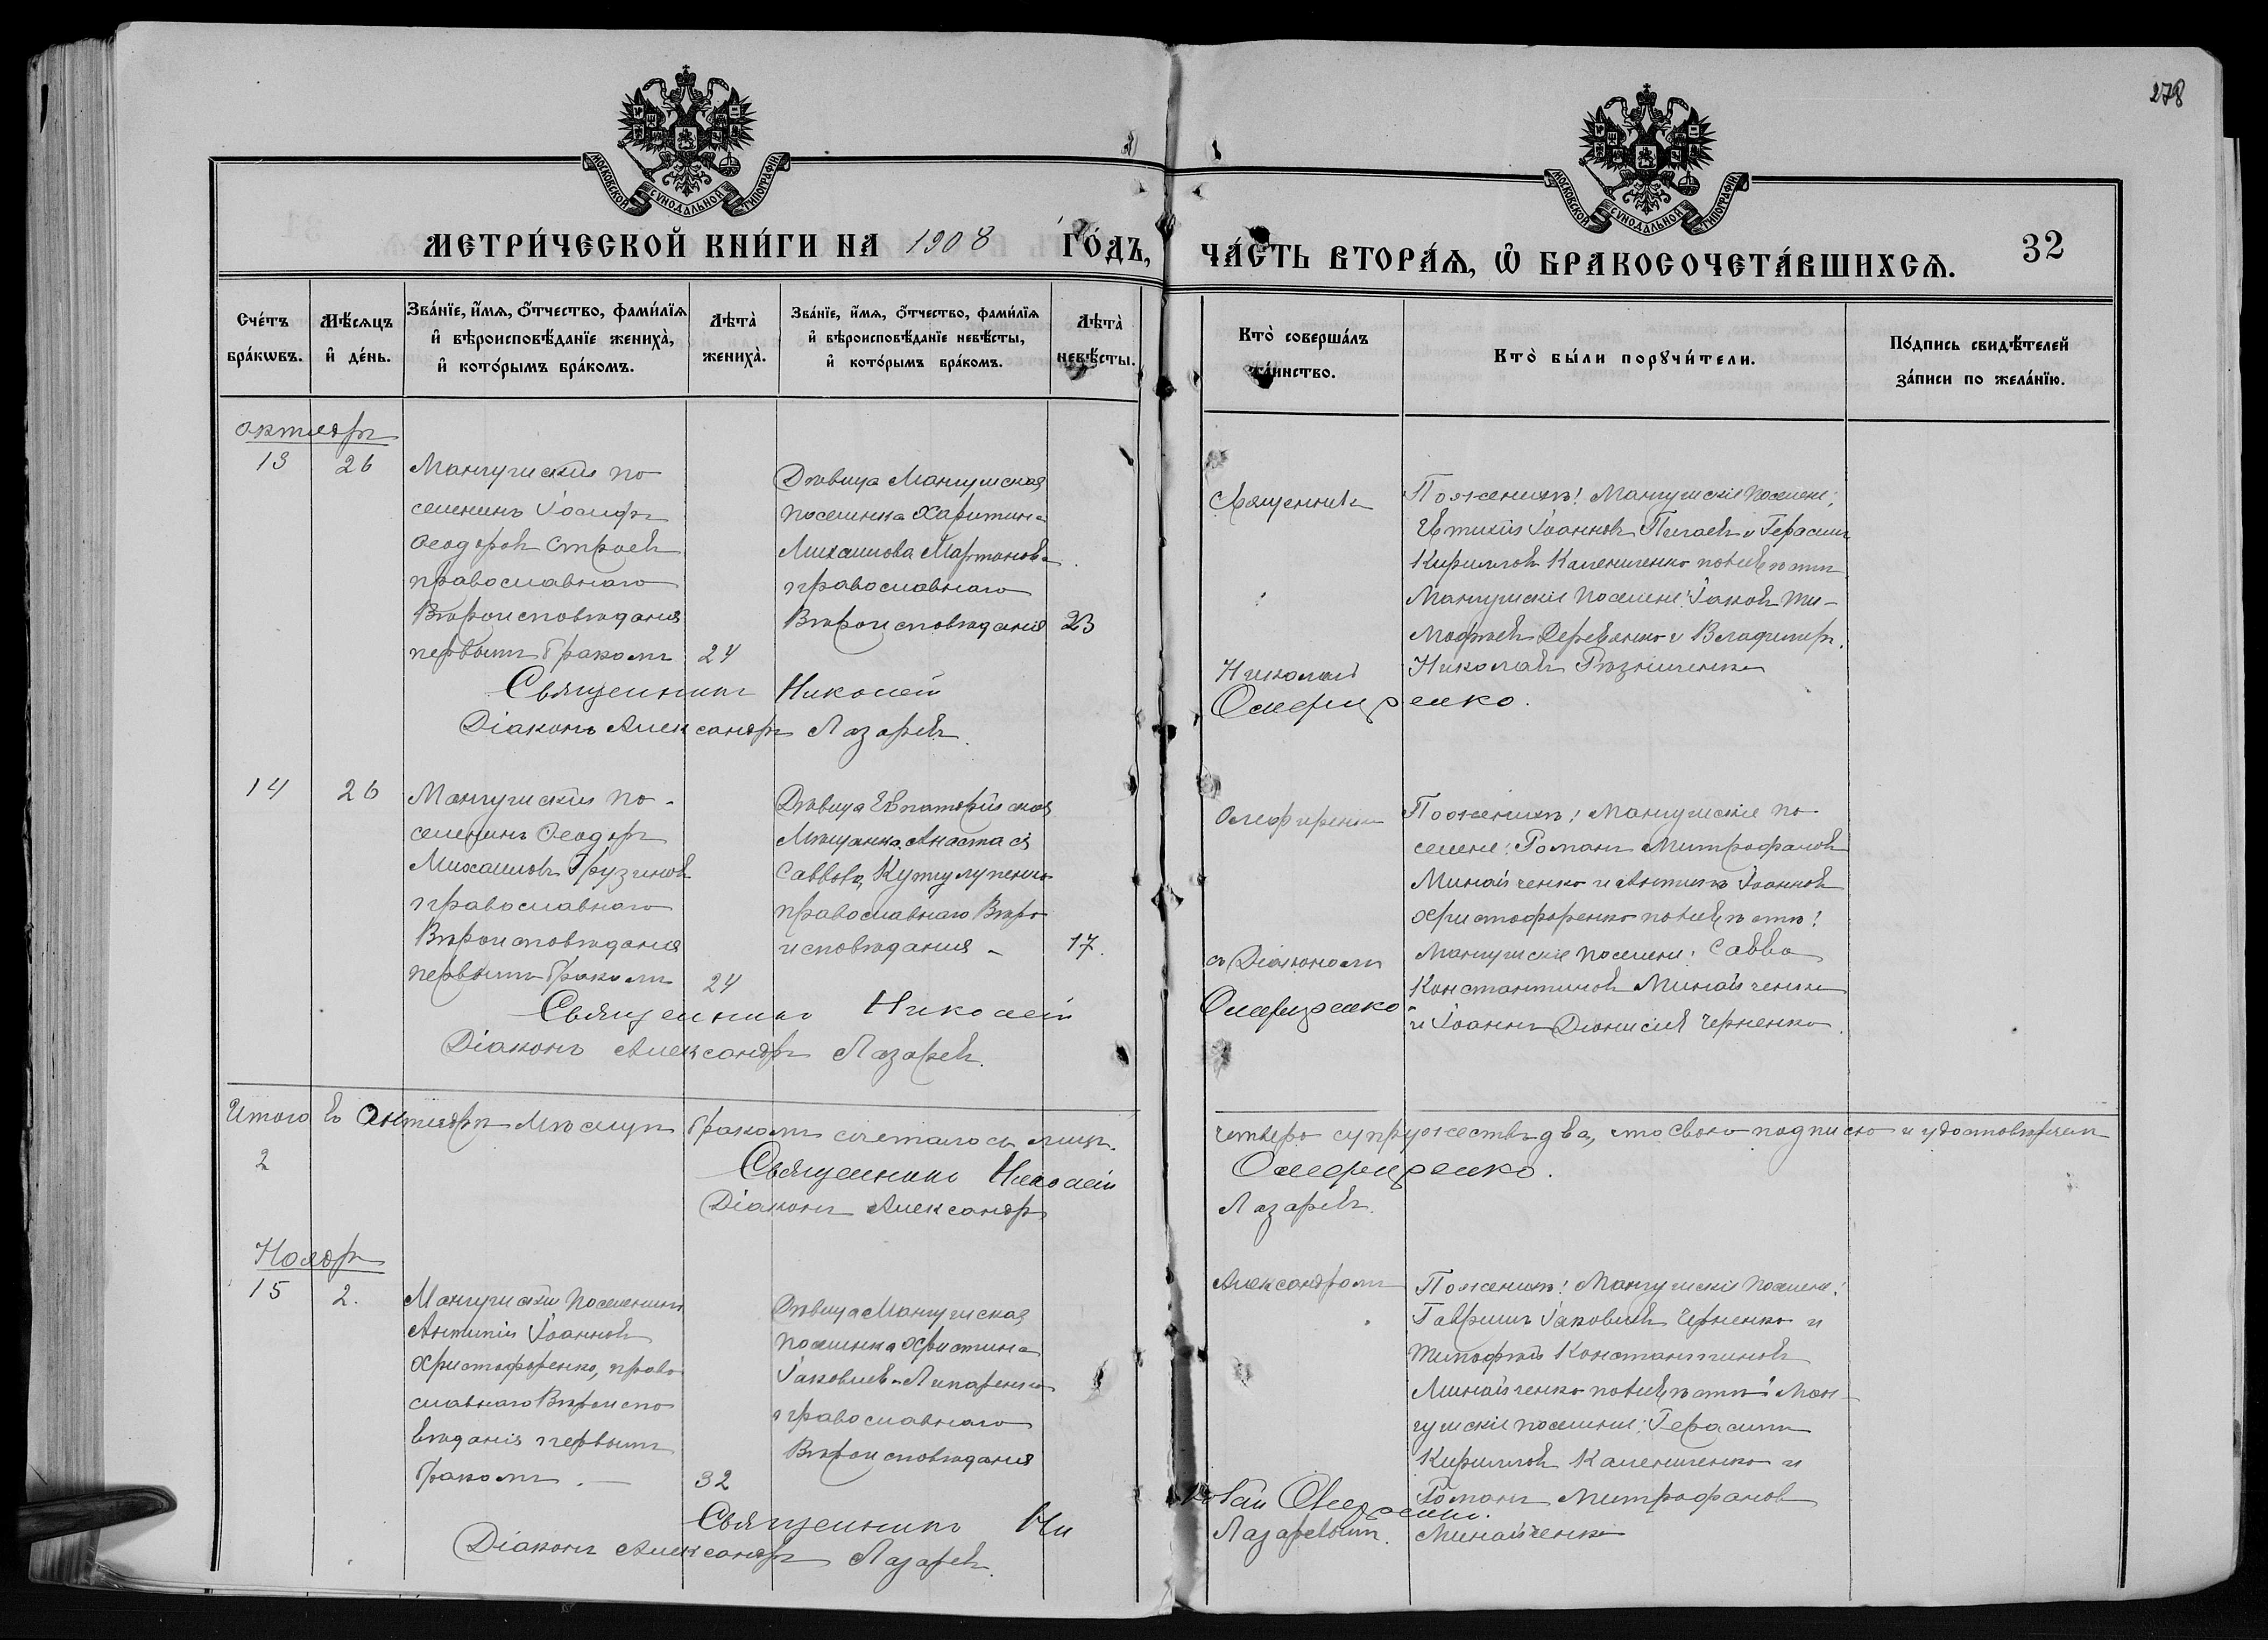 278
МОСКОВСКОЙ СѴНОДАЛЬНОЙ ТИПОГРАФІИ
МОСКОВСКОЙ СѴНОДАЛЬНОЙ ТИПОГРАФІИ
МЕТРИ́ЧЕСКОЙ КНИ́ГИ НА 1908 ГО́ДЪ,
ЧА́СТЬ ВТОРА́Ѧ, Ѿ БРАКОСОЧЕТА́ВШИХСѦ.
32
Сче́тъ бра́кѡвъ.
Мѣ́сѧцъ и҆ де́нь.
Зва́нїе, и҆́мѧ, ѻ҆́тчество, фами́лїѧ
и҆ вѣроисповѣ́данїе жениха̀,
и҆ кото́рымъ бра́комъ.
Лѣта̀ жениха̀.
Зва́нїе, и҆́мѧ, ѻ҆́тчество, фами́лїѧ
и҆ вѣроисповѣ́данїе невѣ́сты,
и҆ кото́рымъ бра́комъ.
Лѣта̀ невѣ́сты.
Кто̀ соверша́лъ
та́инство.
Кто̀ бы́ли порꙋчи́тели.
По́дпись свидѣ́телей
за́писи по жела́нїю.
октябрь
13
26
Мангушскій по
селенинъ Іосифъ
Ѳеодоровъ Строевъ
православнаго
Вѣроисповѣданія
первымъ бракомъ
24
Дѣвица Мангушская
поселянка Харитина
Михаилова Мартонова
православнаго
Вѣроисповѣданія
23
Священникъ
Николай
По женихѣ: Мангушскіе поселяне:
Евтихій Іоанновъ Пичаевъ и Герасимъ
Кирилловъ Калениченко по невѣстѣ
Мангушскіе поселяне: Іаковъ Ти-
мофѣевъ Деревянко и Владимиръ
Николаевъ Рѣзниченко
Священникъ Николай Олефиренко.
Діаконъ Александръ Лазаревъ.
14
26
Мангушскій по-
селенинъ Ѳеодоръ
Михаиловъ Грузиновъ
православнаго
Вѣроисповѣданія
первымъ бракомъ
24
Дѣвица Евпаторійская
Мѣщанка Анастасія
Саввова Кутулупенко
православнаго Вѣро
исповѣданія -
17.
Олефиренко
съ Діакономъ
По женихѣ: Мангушскіе по-
селяне: Романъ Митрофановъ
Минайченко и Антипъ Іоанновъ
Христофоренко по невѣстѣ:
Мангушскіе поселяне: Савва
Константиновъ Минайченко
и Іоаннъ Діонисіевъ Черненко.
Священникъ Николай Олефиренко
Діаконъ Александръ Лазаревъ.
Итого въ Октябрѣ мѣсяцѣ бракомъ сочеталось лицъ четверо супружествъ два, что свою подписью и удостовѣряемъ
2
Священникъ Николай Олефиренко.
Діаконъ Александръ Лазаревъ.
Ноябрь
15
2.
Мангушскій поселенинъ
Антипій Іоанновъ
Христофоренко, право
славнаго Вѣроиспо
вѣданія первымъ
бракомъ. —
32
Дѣвица Мангушская
поселянка Христина
Іаковлева Липаренко
православнаго
Вѣроисповѣданія
Александромъ
Лазаревымъ.
По женихѣ: Мангушскіе поселяне:
Гавриилъ Іаковлевъ Черненко и
Тимофѣй Константиновъ
Минайченко по невѣстѣ: Ман-
гушскіе поселяне: Герасимъ
Кирилловъ Калениченко и
Романъ Митрофановъ
Минайченко
Священникъ Николай Олефиренко.
Діаконъ Александръ Лазаревъ.